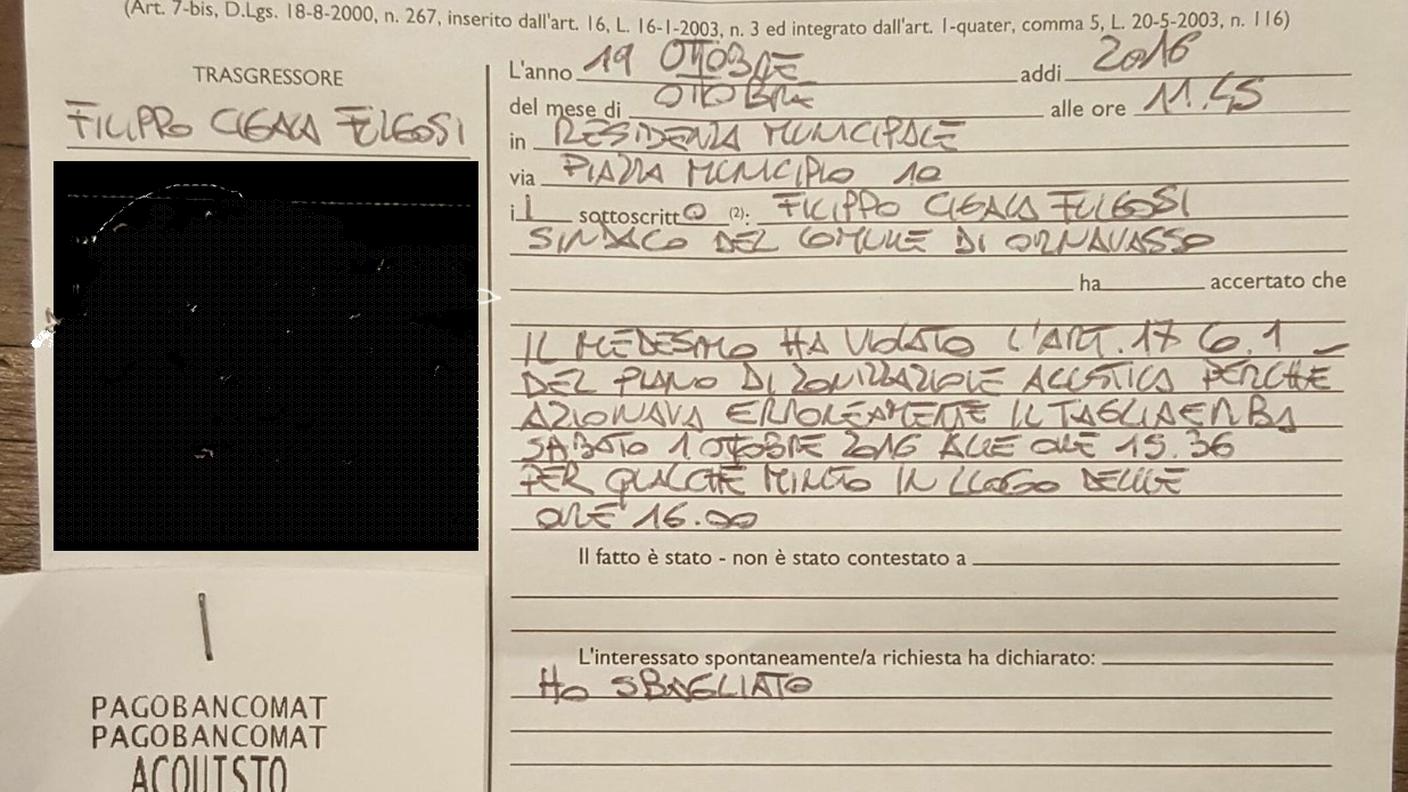 (Art. 7-bis, D.Lgs. 18-8-2000, n. 267, inserito dall'art. 16, L. 16-1-2003, n. 3 ed integrato dall'art. 1-quater, comma 5, L. 20-5-2003, n. 116)
TRASGRESSORE
FILIPPO CIGALA FULGOSI
L'anno 19 OTTOBRE addi 2016
del mese di OTTOBRE alle ore 11.45
in RESIDENZA MUNICIPALE
via PIAZZA MUNICIPIO 10
i l sottoscritt o (2): FILIPPO CIGALA FULGOSI
SINDACO DEL COMUNE DI ORNAVASSO
ha accertato che
IL MEDESIMO HA VIOLATO L'ART. 17 CO. 1
DEL PIANO DI ZONIZZAZIONE ACUSTICA PERCHE
AZIONAVA ERRONEAMENTE IL TAGLIAERBA
SABATO 1 OTTOBRE 2016 ALLE ORE 15.36
PER QUALCHE MINUTO IN LUOGO DELLE
ORE 16.00
Il fatto è stato - non è stato contestato a
L'interessato spontaneamente/a richiesta ha dichiarato:
HO SBAGLIATO
PAGOBANCOMAT
PAGOBANCOMAT
ACQUISTO